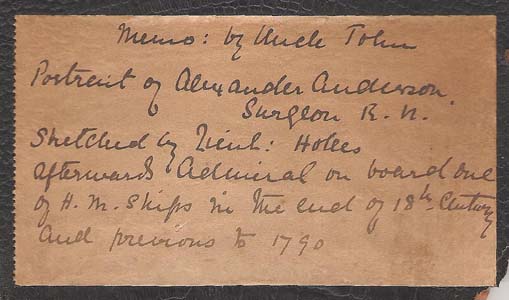 Memo: by Uncle John
Portrait of Alexander Anderson.
Surgeon R. N.
Sketched by Lieut: Holles
afterwards Admiral on board one
of H. M. Ships in the end of 18th Century
and previous to 1790